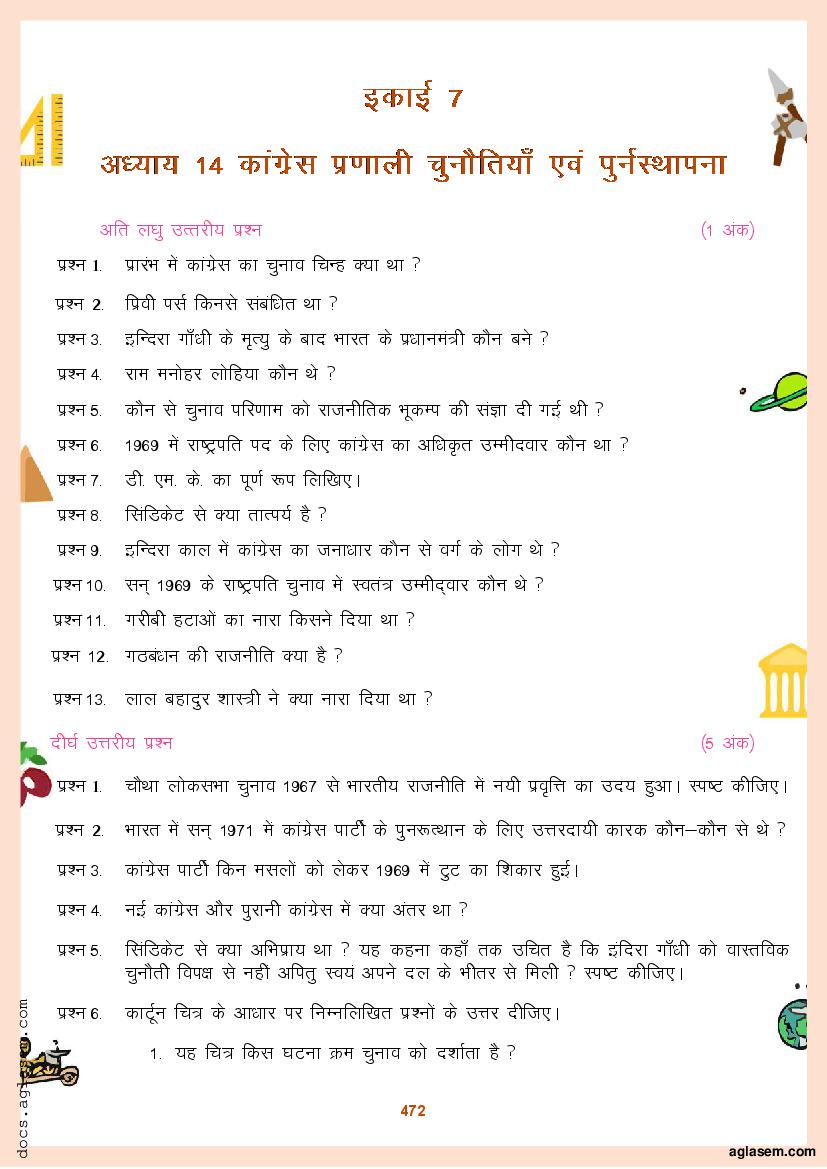 इकाई 7
अध्याय 14 कांग्रेस प्रणाली चुनौतियाँ एवं पुर्नस्थापना
अति लघु उत्तरीय प्रश्न (1 अंक)
प्रश्न 1. प्रारंभ में कांग्रेस का चुनाव चिन्ह क्या था ?
प्रश्न 2. प्रिवी पर्स किनसे संबंधित था ?
प्रश्न 3. इन्दिरा गाँधी के मृत्यु के बाद भारत के प्रधानमंत्री कौन बने ?
प्रश्न 4. राम मनोहर लोहिया कौन थे ?
प्रश्न 5. कौन से चुनाव परिणाम को राजनीतिक भूकम्प की संज्ञा दी गई थी ?
प्रश्न 6. 1969 में राष्ट्रपति पद के लिए कांग्रेस का अधिकृत उम्मीदवार कौन था ?
प्रश्न 7. डी. एम. के. का पूर्ण रूप लिखिए।
प्रश्न 8. सिंडिकेट से क्या तात्पर्य है ?
प्रश्न 9. इन्दिरा काल में कांग्रेस का जनाधार कौन से वर्ग के लोग थे ?
प्रश्न 10. सन् 1969 के राष्ट्रपति चुनाव में स्वतंत्र उम्मीद्वार कौन थे ?
प्रश्न 11. गरीबी हटाओं का नारा किसने दिया था ?
प्रश्न 12. गठबंधन की राजनीति क्या है ?
प्रश्न 13. लाल बहादुर शास्त्री ने क्या नारा दिया था ?
दीर्घ उत्तरीय प्रश्न (5 अंक)
प्रश्न 1. चौथा लोकसभा चुनाव 1967 से भारतीय राजनीति में नयी प्रवृत्ति का उदय हुआ। स्पष्ट कीजिए।
प्रश्न 2. भारत में सन् 1971 में कांग्रेस पार्टी के पुनरूत्थान के लिए उत्तरदायी कारक कौन–कौन से थे ?
प्रश्न 3. कांग्रेस पार्टी किन मसलों को लेकर 1969 में टुट का शिकार हुई।
प्रश्न 4. नई कांग्रेस और पुरानी कांग्रेस में क्या अंतर था ?
प्रश्न 5. सिंडिकेट से क्या अभिप्राय था ? यह कहना कहाँ तक उचित है कि इंदिरा गाँधी को वास्तविक
चुनौती विपक्ष से नहीं अपितु स्वयं अपने दल के भीतर से मिली ? स्पष्ट कीजिए।
प्रश्न 6. कार्टून चित्र के आधार पर निम्नलिखित प्रश्नों के उत्तर दीजिए।
1. यह चित्र किस घटना क्रम चुनाव को दर्शाता है ?
472
aglasem.com